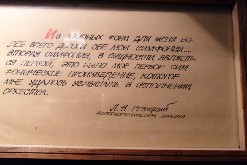 Из крупных форм для меня бо-
лее всего дороги обе мои симфонии...
вторая симфония, в сущности являет-
ся первой, это было моё первое сим-
фоническое произведение, которое
мне удалось услышать в исполнении
оркестра.
Л. Н.